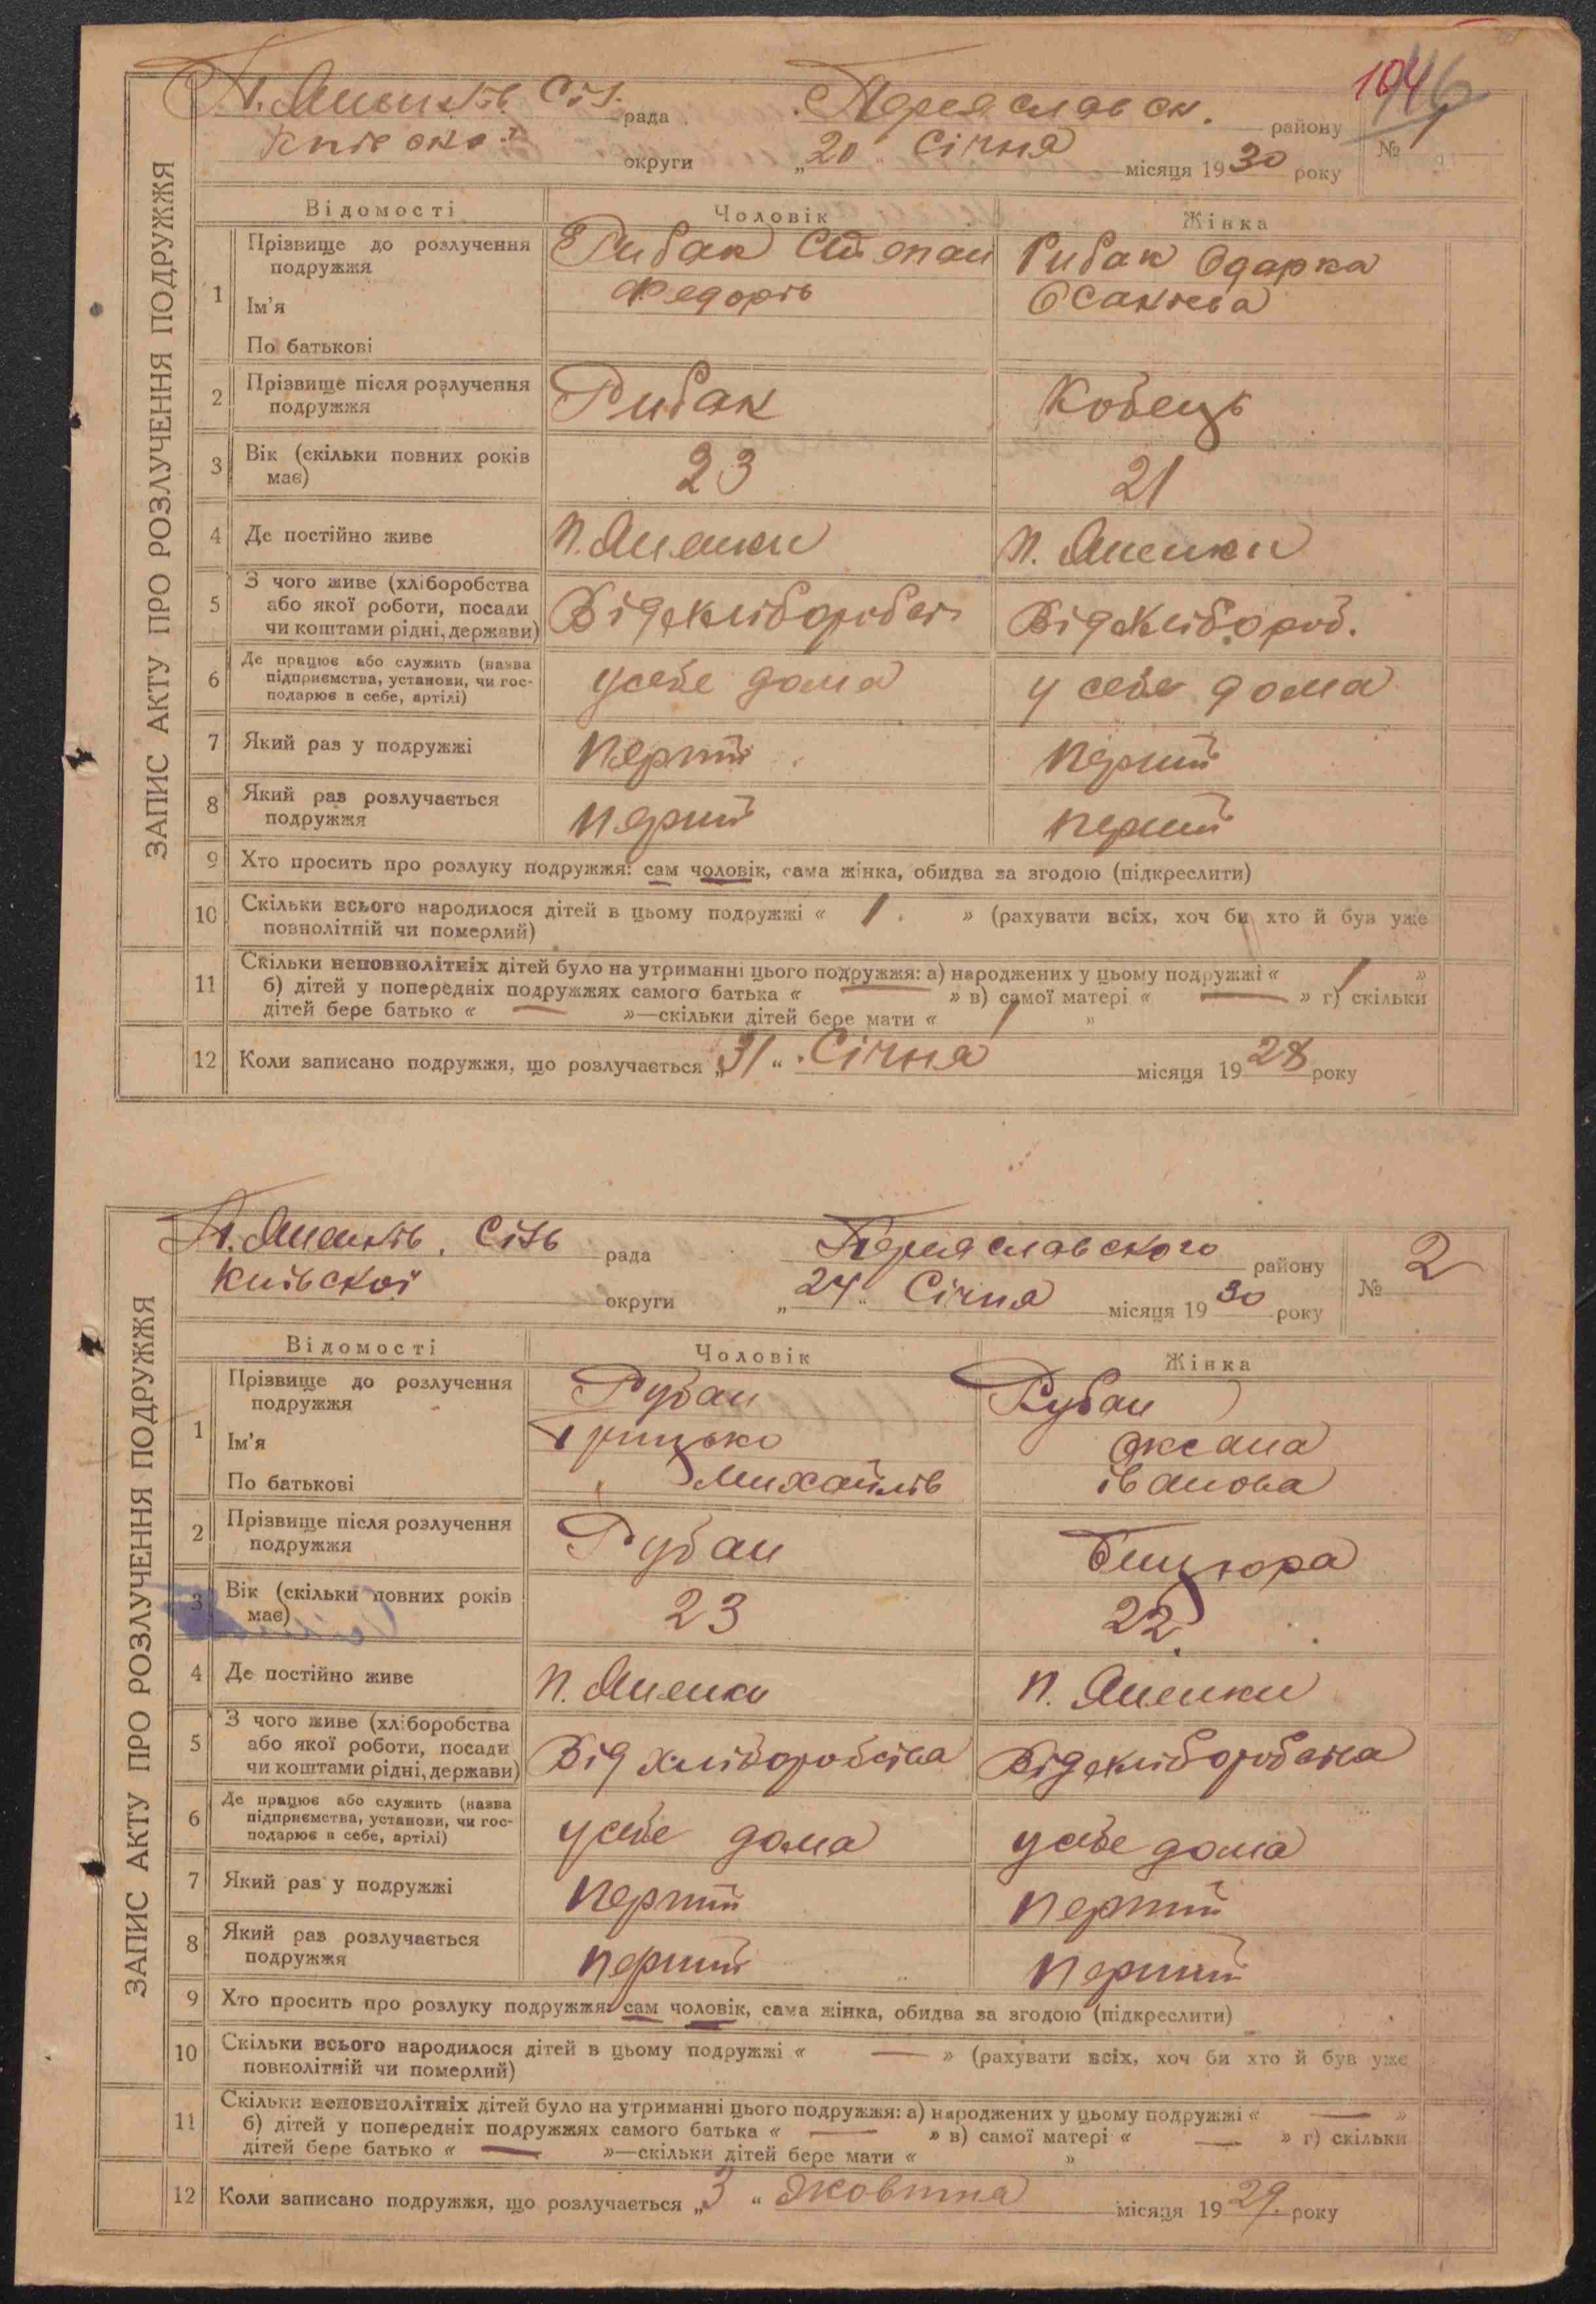 104
146
ЗАПИС АКТУ ПРО РОЗЛУЧЕННЯ ПОДРУЖЖЯ
П. Яненків Сіл. рада Переяславськ. району № 1
Київської округи „20“ Січня місяця 1930 року
Відомості Чоловік Жінка
1 Прізвище до розлучення подружжя Рибак Степан Рибак Одарка
Ім'я Федорів Осаківа
По батькові
2 Прізвище після розлучення подружжя Рибак Кобець
3 Вік (скільки повних років має) 23 21
4 Де постійно живе П. Яненки П. Яненки
5 З чого живе (хліборобства
або якої роботи, посади
чи коштами рідні, держави) Від хлібороб. Від хлібороб.
6 Де працює або служить (назва
підприємства, установи, чи гос-
подарює в себе, артілі) у себе дома у себе дома
7 Який раз у подружжі перший перший
8 Який раз розлучається подружжя перший перший
9 Хто просить про розлуку подружжя: сам чоловік, сама жінка, обидва за згодою (підкреслити)
10 Скільки всього народилося дітей в цьому подружжі « 1 » (рахувати всіх, хоч би хто й був уже
повнолітній чи померлий)
11 Скільки неповнолітніх дітей було на утриманні цього подружжя: а) народжених у цьому подружжі « 1 »
б) дітей у попередніх подружжях самого батька « — » в) самої матері « — » г) скільки
дітей бере батько « — »—скільки дітей бере мати « 1 »
12 Коли записано подружжя, що розлучається „31“ Січня місяця 1928 року
ЗАПИС АКТУ ПРО РОЗЛУЧЕННЯ ПОДРУЖЖЯ
П. Яненків. Сіль рада Переяславського району № 2
Київської округи „24“ Січня місяця 1930 року
Відомості Чоловік Жінка
1 Прізвище до розлучення подружжя Рубан Рубан
Ім'я Грицько Оксана
По батькові Михайлів Іванова
2 Прізвище після розлучення подружжя Рубан Бицюра
3 Вік (скільки повних років має) 23 22
4 Де постійно живе П. Яненки П. Яненки
5 З чого живе (хліборобства
або якої роботи, посади
чи коштами рідні, держави) Від хліборобства Від хліборобства
6 Де працює або служить (назва
підприємства, установи, чи гос-
подарює в себе, артілі) у себе дома у себе дома
7 Який раз у подружжі перший перший
8 Який раз розлучається подружжя перший перший
9 Хто просить про розлуку подружжя: сам чоловік, сама жінка, обидва за згодою (підкреслити)
10 Скільки всього народилося дітей в цьому подружжі « — » (рахувати всіх, хоч би хто й був уже
повнолітній чи померлий)
11 Скільки неповнолітніх дітей було на утриманні цього подружжя: а) народжених у цьому подружжі « — »
б) дітей у попередніх подружжях самого батька « — » в) самої матері « — » г) скільки
дітей бере батько « — »—скільки дітей бере мати « »
12 Коли записано подружжя, що розлучається „3“ Жовтня місяця 1929 року